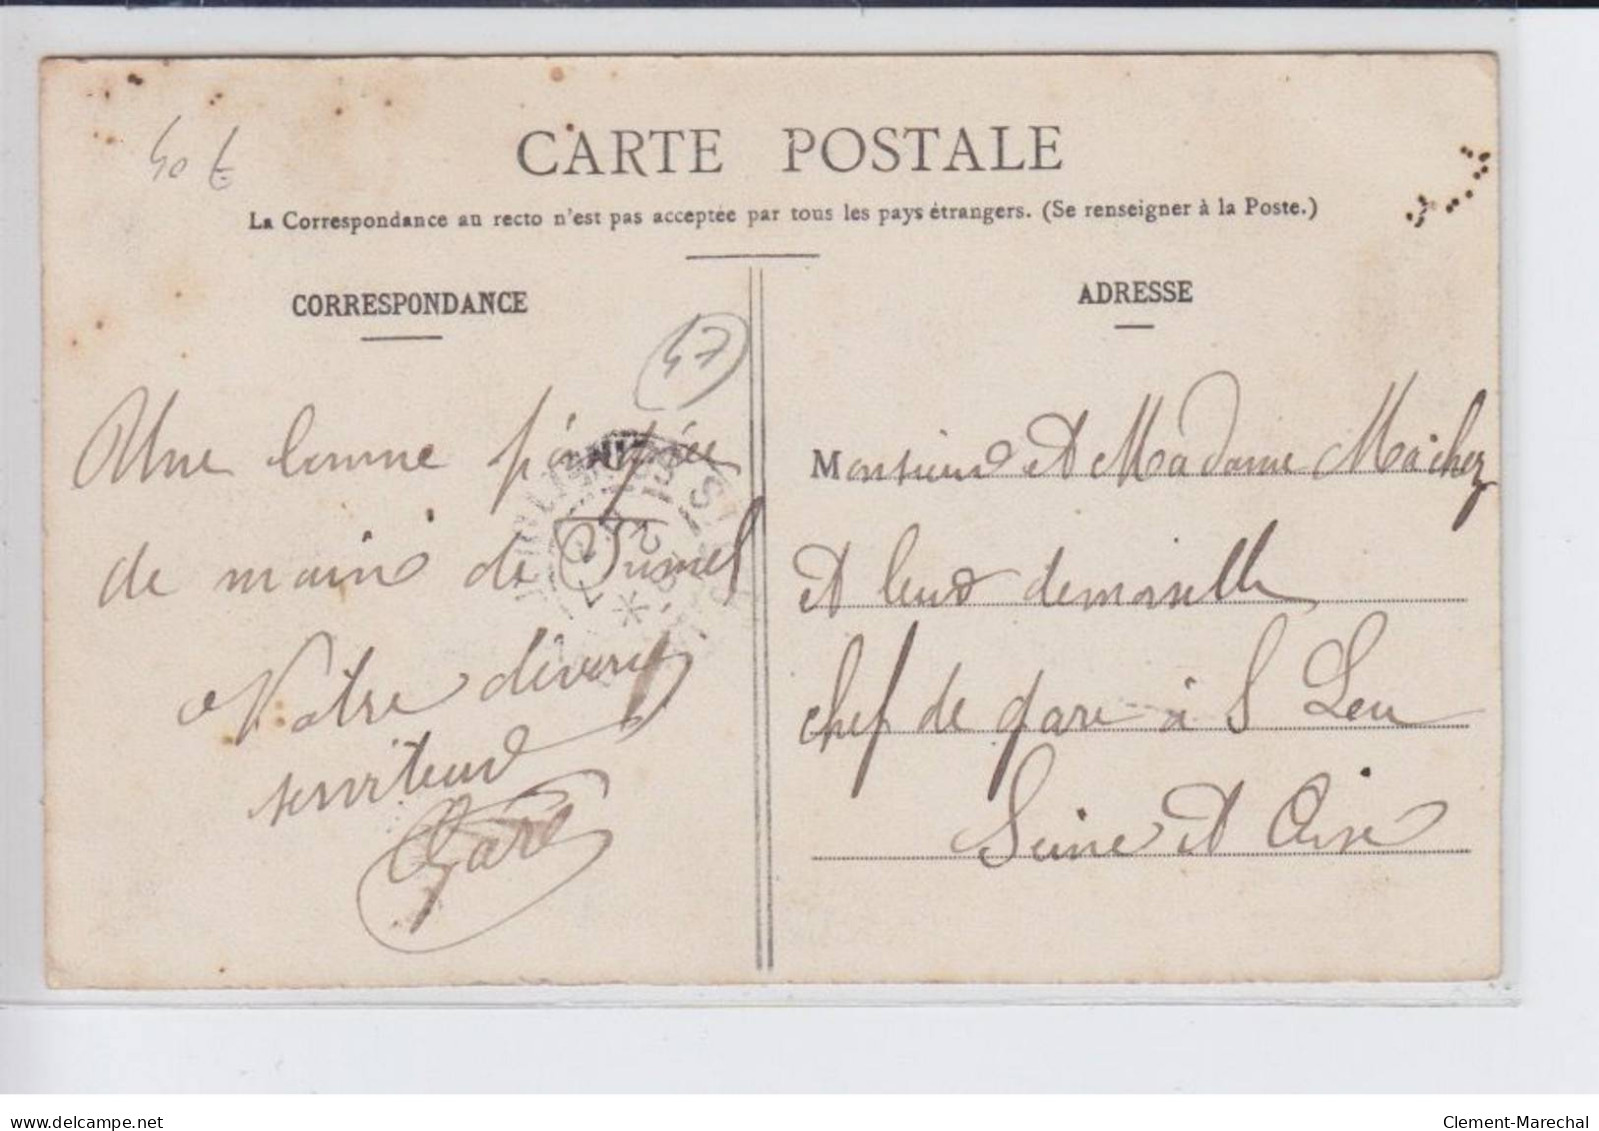 40 €
CARTE POSTALE
La Correspondance au recto n'est pas acceptée par tous les pays étrangers. (Se renseigner à la Poste.)
CORRESPONDANCE
47
Une bonne pensée
de main de Fumel
Votre dévoué
serviteur
Gare
ADRESSE
Monsieur et Madame Machez
et leur demoiselle
chef de gare à S Leu
Seine et Oise
delcampe.net
Clement-Marechal